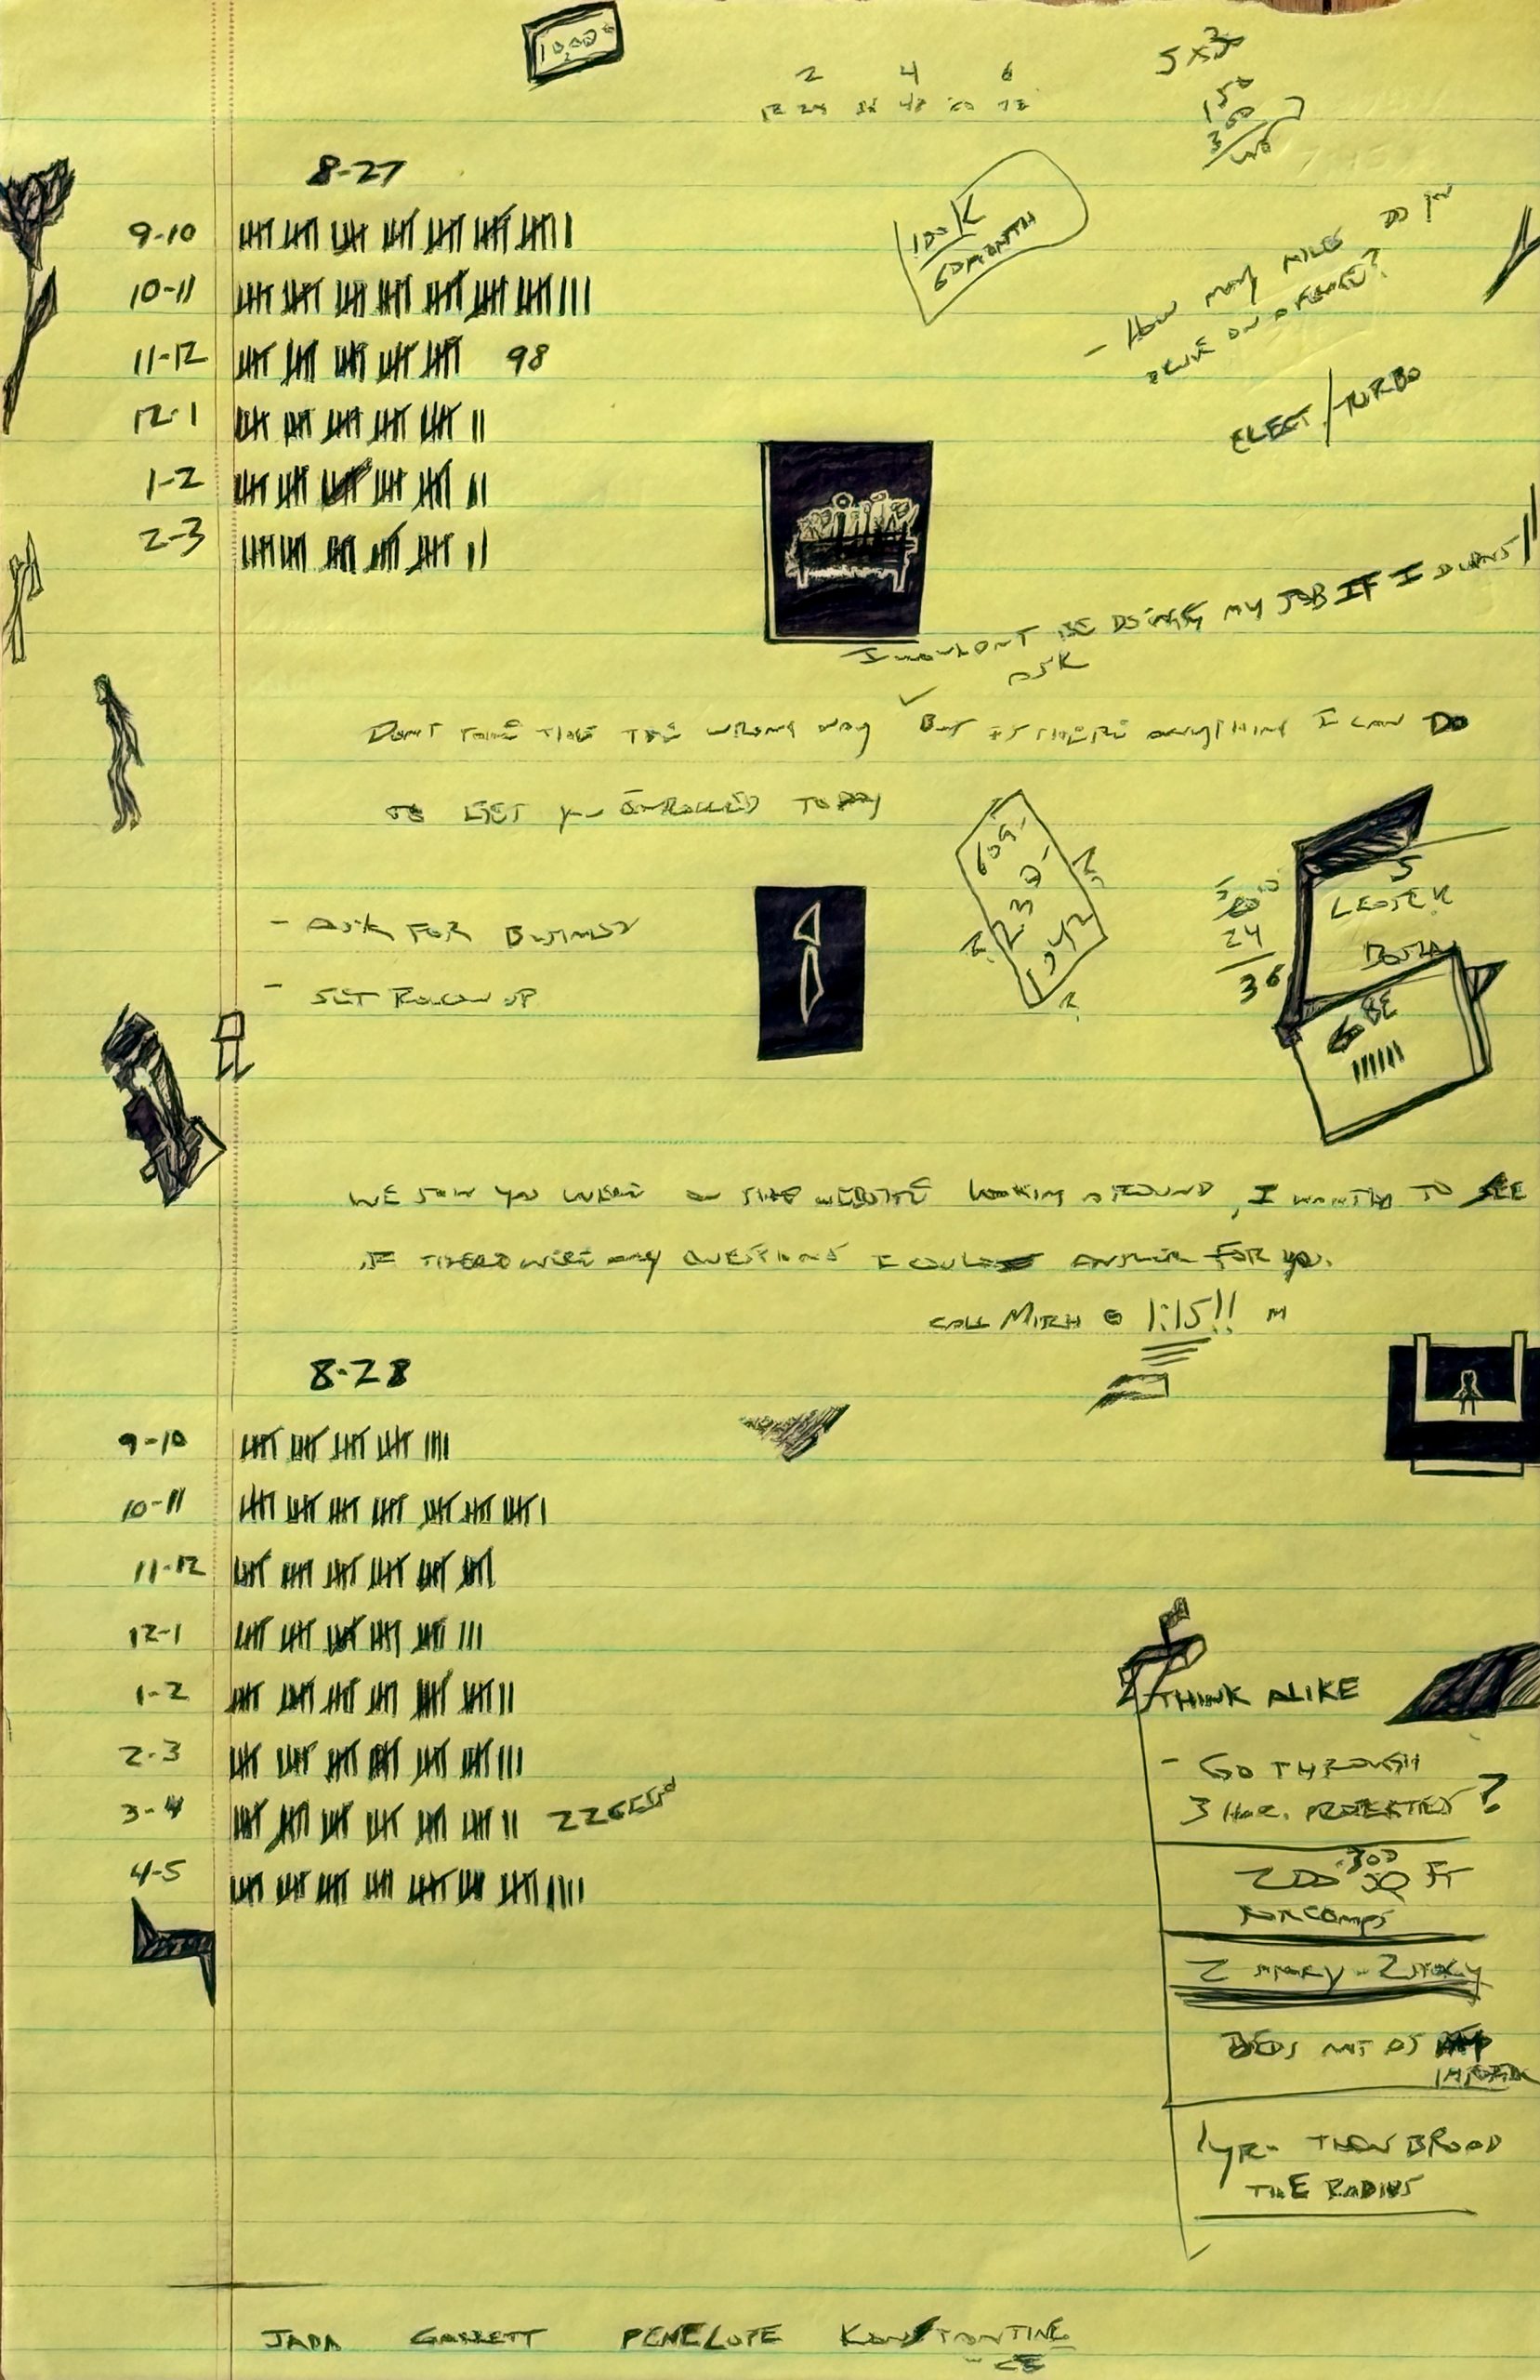 10,000
2 4 6
12 24 36 48 60 72
5 x 30
150
300
8-27
9-10
10-11
11-12 98
12-1
1-2
2-3
100K
60 MONTH
- HOW MANY MILES DO YA
DRIVE ON AVERAGE?
ELECT/TURBO
I WOULDNT BE DOING MY JOB IF I DIDNT
ASK
DONT TAKE THIS THE WRONG WAY BUT IS THERE ANYTHING I CAN DO
TO GET YOU ENROLLED TODAY
- ASK FOR BUSINESS
- SET FOLLOW UP
24
36
5
LEASE
WE SAW YOU WERE ON THE WEBSITE LOOKING AROUND, I WANTED TO SEE
IF THERE WERE ANY QUESTIONS I COULD ANSWER FOR YOU.
CALL MITCH @ 1:15!!
8-28
9-10
10-11
11-12
12-1
1-2
2-3
3-4 226
4-5
THINK ALIKE
- GO THROUGH
3 ?
200 300 SQ FT
FOR COMPS
2 STORY - 2 STORY
BEDS NOT AS
1 YR - THEN BROAD
THE RADIUS
JADA GARRETT PENELOPE KONSTANTINE
CE